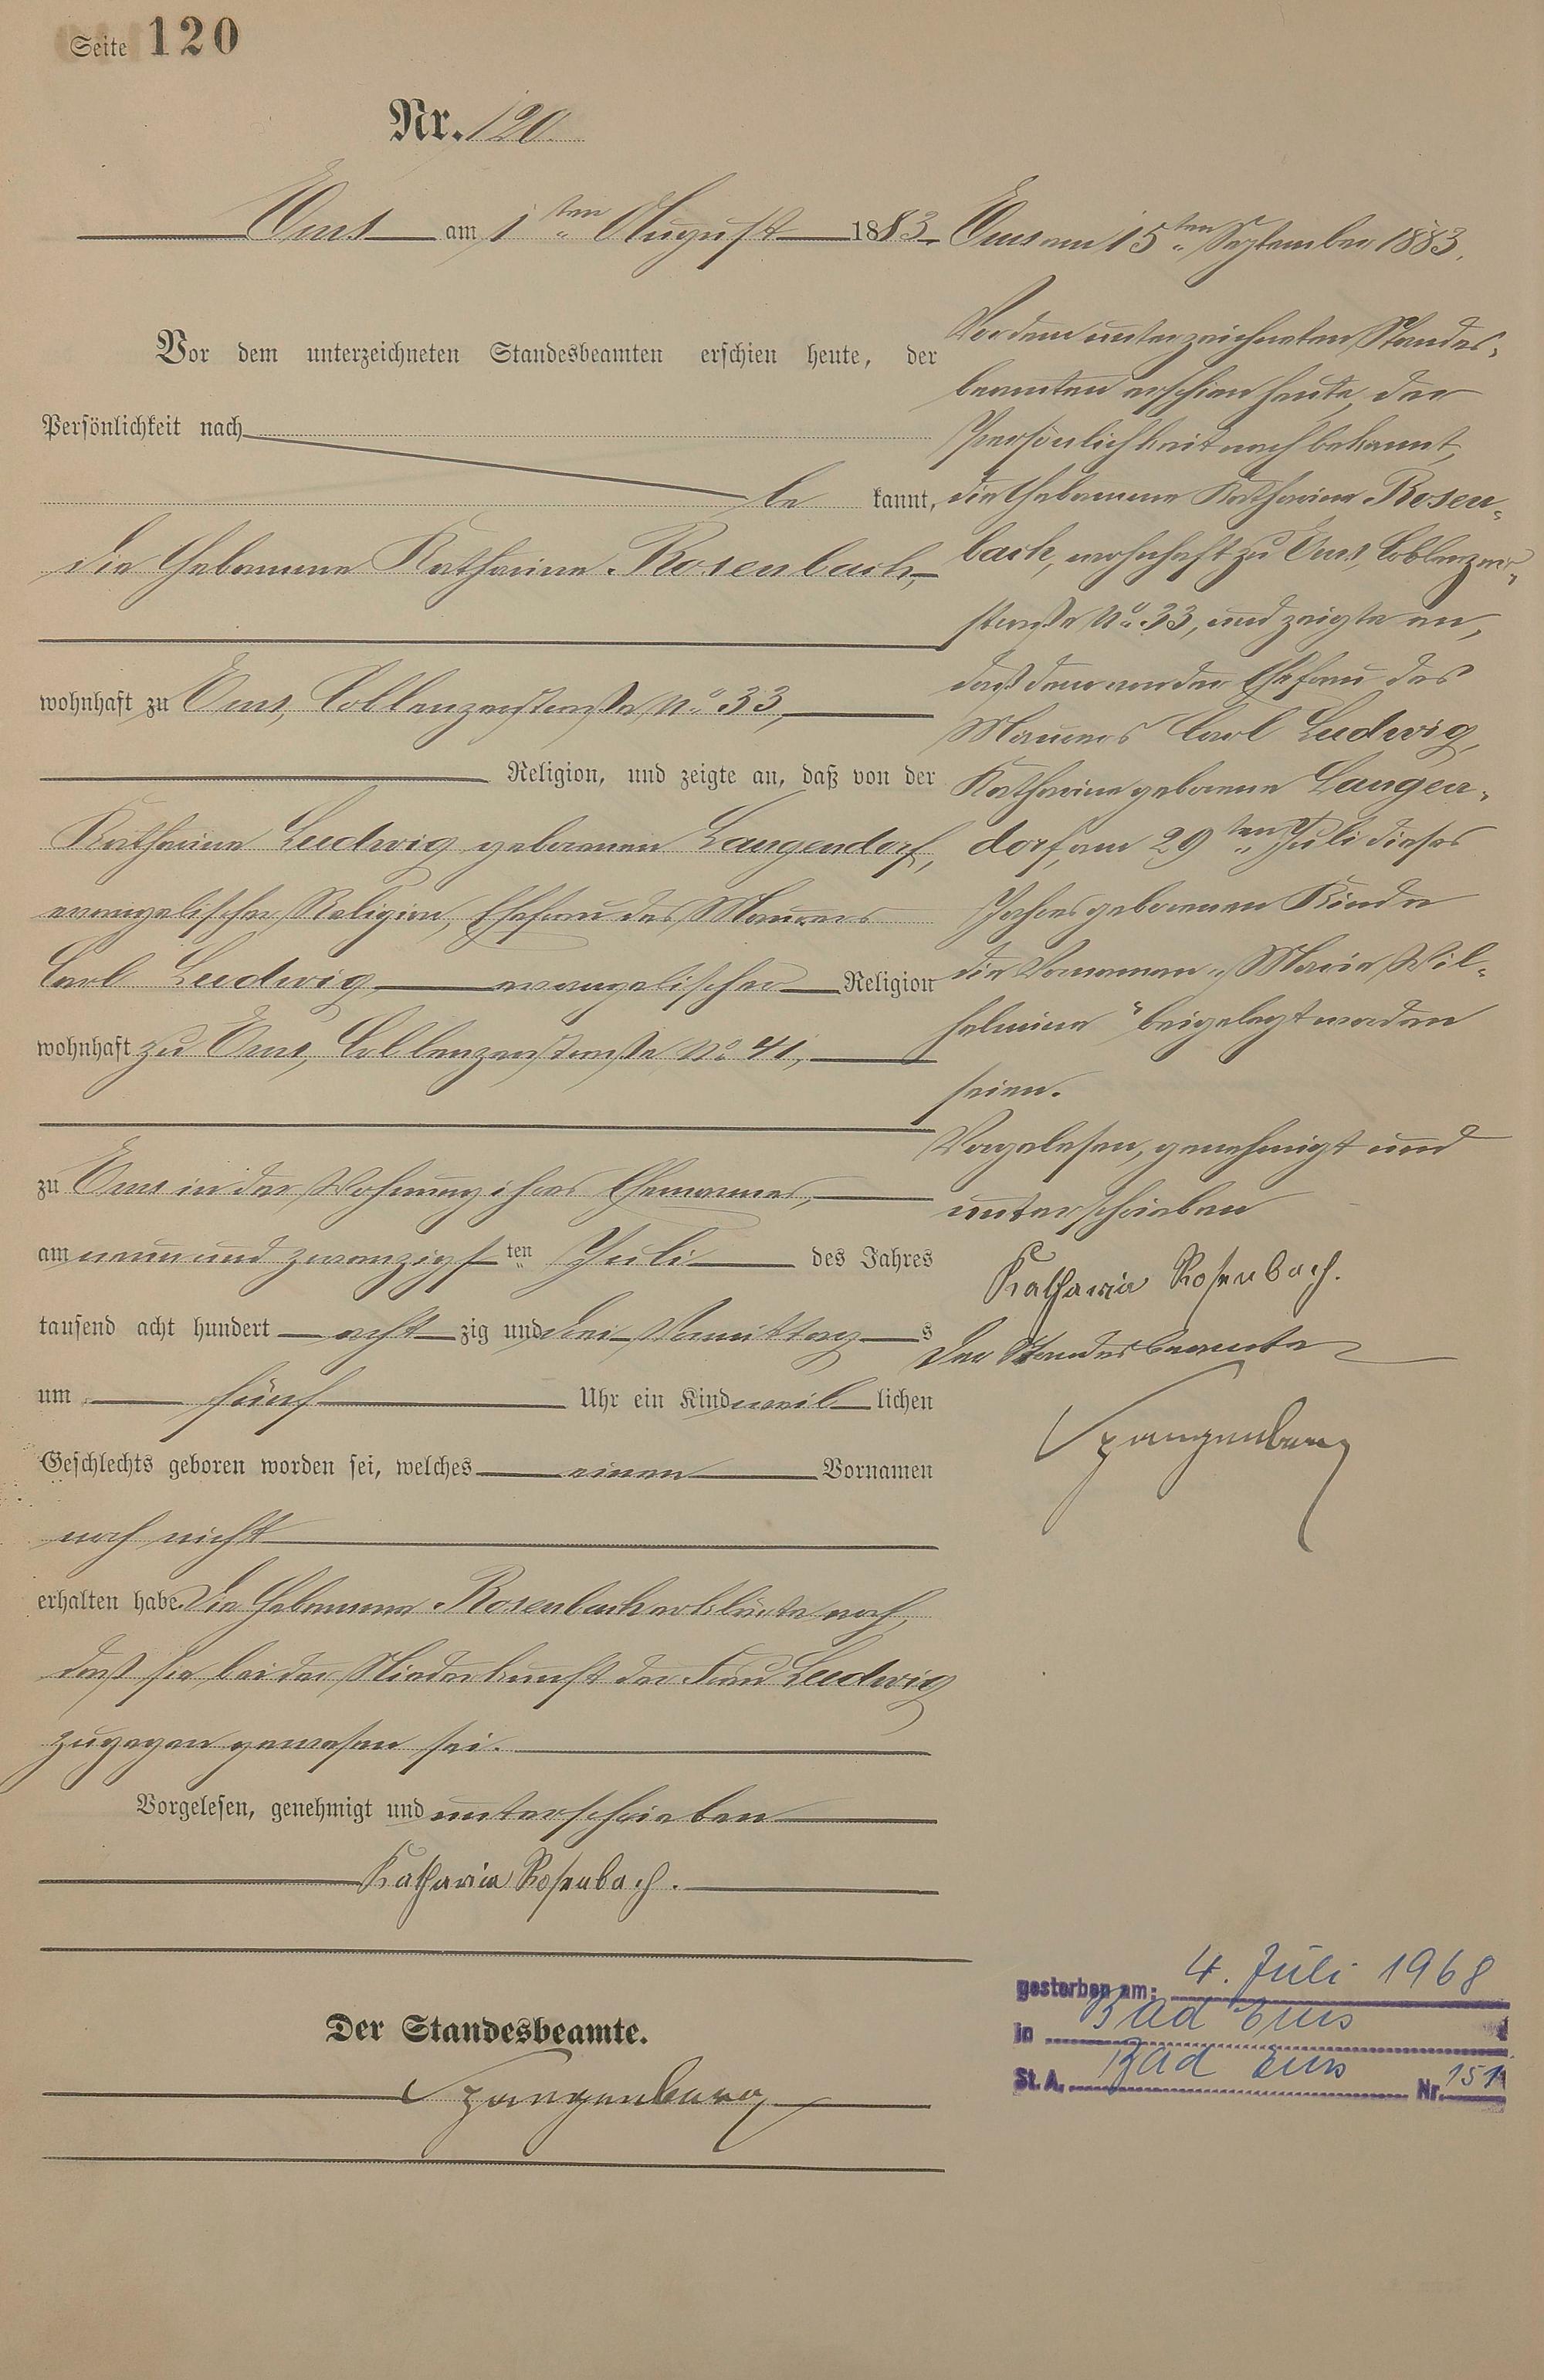 Seite 120
Nr. 120.
Ems am 1ten August 1883.
Vor dem unterzeichneten Standesbeamten erschien heute, der
Persönlichkeit nach
be kannt,
die Hebamme Katharina Rosenbach,
wohnhaft zu Ems, Coblenzerstraße No 33,
Religion, und zeigte an, daß von der
Katharine Ludwig geborenen Langendorf,
evangelischer Religion, Ehefrau des Maurers
Carl Ludwig evangelischer Religion
wohnhaft zu Ems, Coblenzerstraße No 41,
zu Ems in der Wohnung ihres Ehemannes,
am neun und zwanzigsten Juli des Jahres
tausend acht hundert acht zig und drei Vormittags
um fünf Uhr ein Kind weiblichen
Geschlechts geboren worden sei, welches einen Vornamen
noch nicht
erhalten habe. Die Hebamme Rosenbach erklärte noch,
daß sie bei der Niederkunft der Frau Ludwig
zugegen gewesen sei.
Vorgelesen, genehmigt und unterschrieben
Katharina Rosenbach.
Der Standesbeamte.
Spangenberg
Ems am 15ten September 1883.
Vor dem unterzeichneten Standes-
beamten erschien heute, der
Persönlichkeit nach bekannt,
die Hebamme Katharina Rosen-
bach, wohnhaft zu Ems, Coblenzer-
straße No 33, und zeigte an,
daß dem von der Ehefrau des
Maurers Carl Ludwig,
Katharine geborene Langen-
dorf, am 29ten Juli dieses
Jahres geborenen Kinde
die Vornamen „Marie Wil-
helmine" beigelegt worden
seien.
Vorgelesen, genehmigt und
unterschrieben
Katharina Rosenbach.
Der Standesbeamte
Spangenberg
gestorben am: 4. Juli 1968
in Bad Ems
St. A. Bad Ems Nr. 151